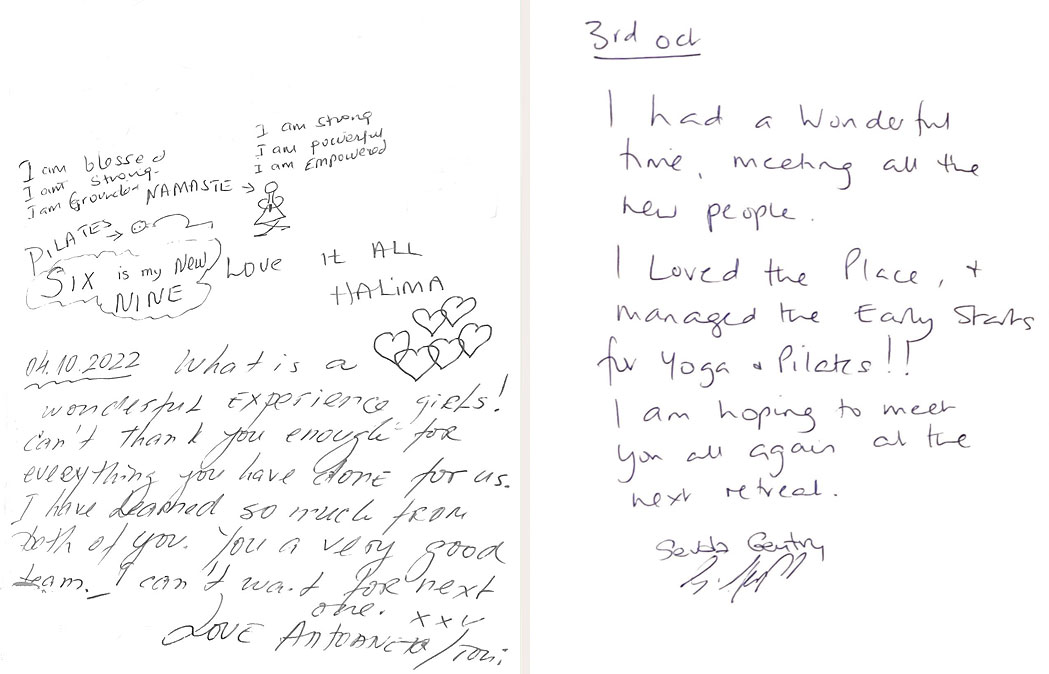 I am blessed
I am strong.
I am Grounded
NAMASTE →
I am strong
I am powerful
I am Empowered
PILATES →
SIX is my New
NINE
LOVE it ALL
HALIMA
04.10.2022 What is a
wonderful Experience girls!
can't thank you enough for
everything you have done for us.
I have learned so much from
both of you. You a very good
team. I can't wait for next
one. xxx
LOVE Antoaneta/Toni
3rd oct
I had a wonderful
time, meeting all the
new people.
I Loved the Place, +
managed the Early Starts
for Yoga + Pilates!!
I am hoping to meet
you all again at the
next retreat.
Gentry